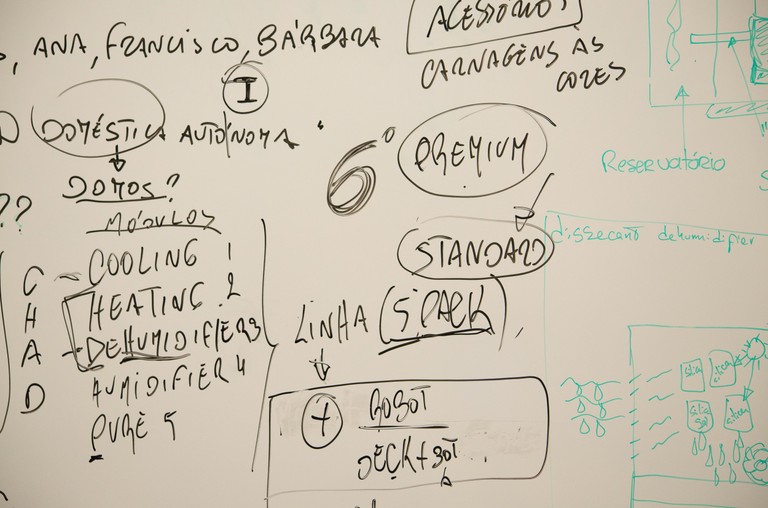 ACESSÓRIOS
, ANA, FRANCISCO, BÁRBARA
CARNAGENS AS
CORES
I
DOMÉSTICA AUTÓNOMA
6º PREMIUM
Reservatório
DOMOS?
??
MÓDULOS
STANDARD
dissecant dehumidifier
C
H
A
D
COOLING 1
HEATING 2
DEHUMIDIFIER 3
HUMIDIFIER 4
PURE 5
LINHA (SPACK),
+ ROBOT
DECK + BOT